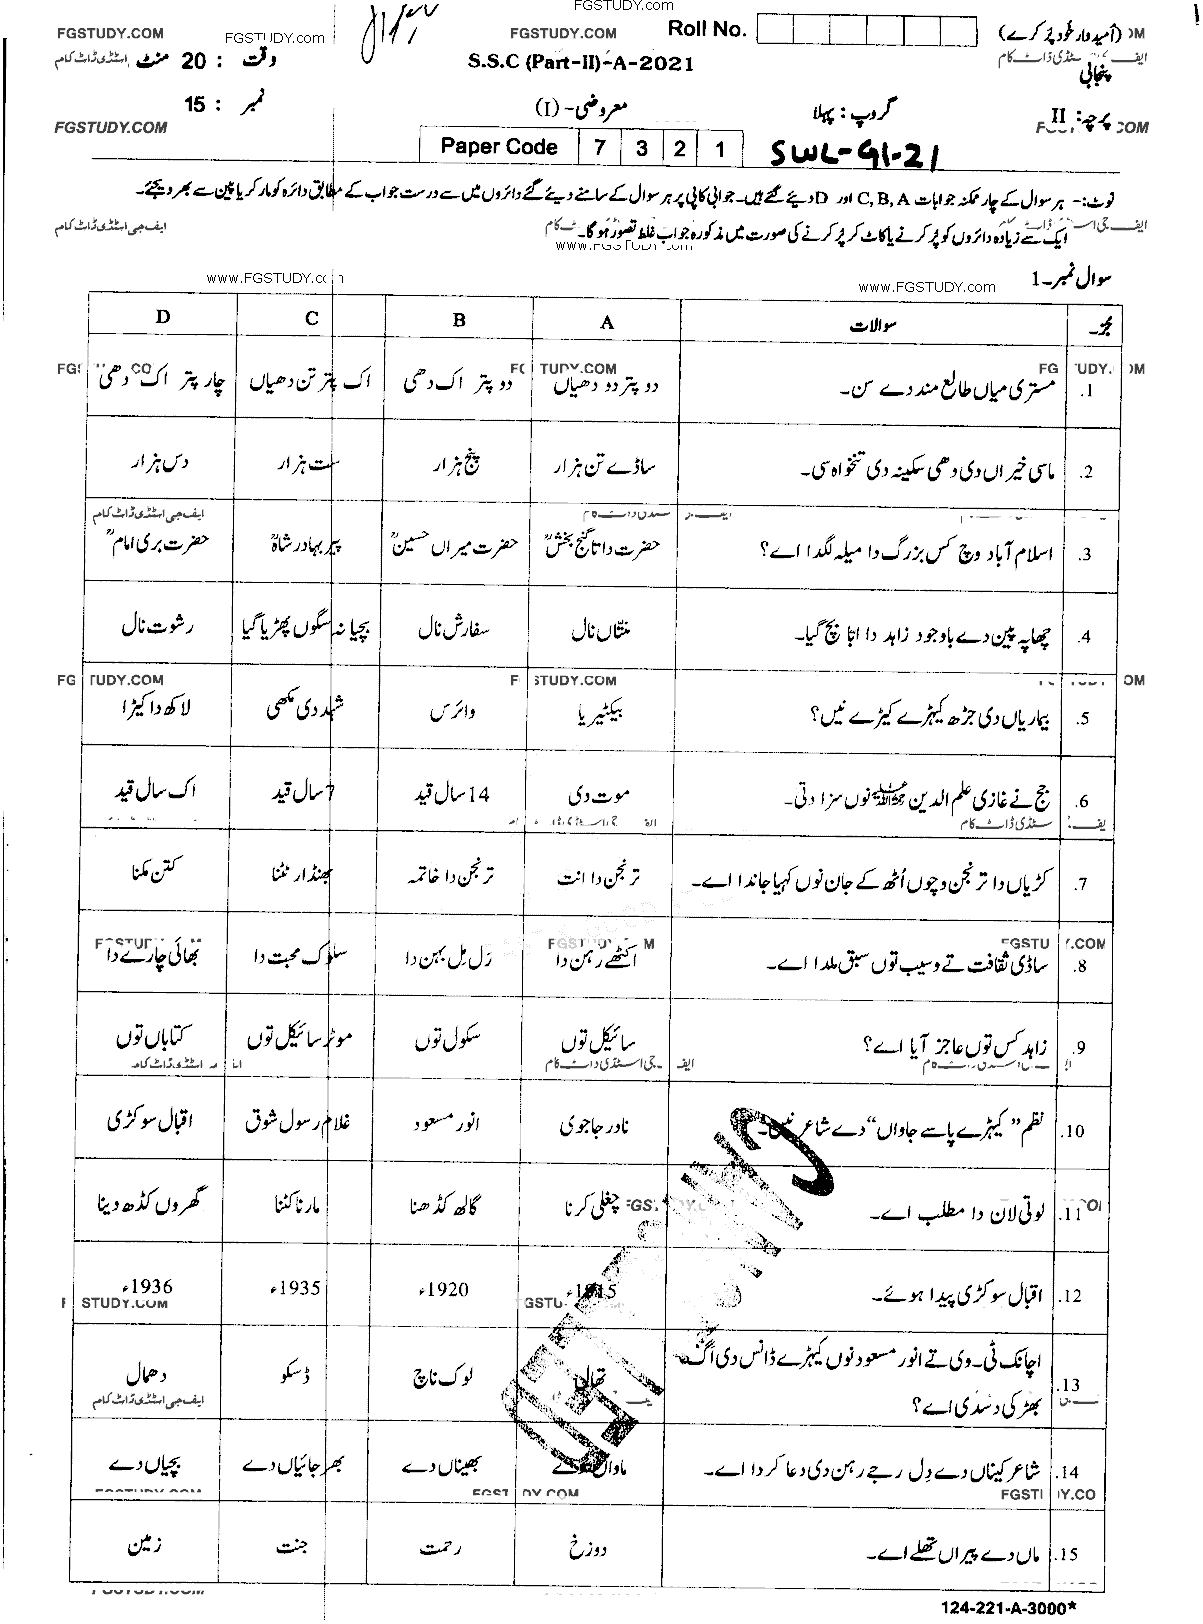 FGSTUDY.COM
FGSTUDY.COM FGSTUDY.COM FGSTUDY.COM Roll No. (امیدوار خود پُر کرے)
ایف جی اسٹڈی ڈاٹ کام وقت : 20 منٹ S.S.C (Part-II)-A-2021 پنجابی
پرچہ: II گروپ : پہلا معروضی - (I) نمبر : 15
FGSTUDY.COM
Paper Code 7 3 2 1 SWL-G1-21
نوٹ:- ہر سوال کے چار ممکنہ جوابات C, B, A اور D دیئے گئے ہیں۔ جوابی کاپی پر ہر سوال کے سامنے دیئے گئے دائروں میں سے درست جواب کے مطابق دائرہ کو مارکر یا پین سے بھر دیجئے۔
ایک سے زیادہ دائروں کو پُر کرنے یا کاٹ کر پُر کرنے کی صورت میں مذکورہ جواب غلط تصور ہو گا۔
ایف جی اسٹڈی ڈاٹ کام
www.FGSTUDY.com
سوال نمبر۔1
www.FGSTUDY.com www.FGSTUDY.com
سوالات A B C D
1. مستری میاں طالع مند دے سن۔ دو پتر دو دھیاں دو پتر اک دھی اک پتر تن دھیاں چار پتر اک دھی
2. ماسی خیراں دی دھی سکینہ دی تنخواہ سی۔ ساڈے تن ہزار پنج ہزار ست ہزار دس ہزار
ایف جی اسٹڈی ڈاٹ کام
3. اسلام آباد وچ کس بزرگ دا میلہ لگدا اے؟ حضرت داتا گنج بخشؒ حضرت میراں حسینؒ پیر بہادر شاہؒ حضرت بری امامؒ
4. چھاپہ پین دے باوجود زاہد دا ابا بچ گیا۔ منتاں نال سفارش نال بچیا نہ سگوں پھڑیا گیا رشوت نال
5. بیماریاں دی جڑھ کیہڑے کیڑے نیں؟ بیکٹیریا وائرس شہد دی مکھی لاکھ دا کیڑا
6. جج نے غازی علم الدین ﷺ نوں سزا دتی۔ موت دی 14 سال قید 7 سال قید اک سال قید
7. کڑیاں دا ترنجن وچوں اُٹھ کے جان نوں کہیا جاندا اے۔ ترنجن دا انت ترنجن دا خاتمہ بھنڈار نٹنا کتن مکنا
FGSTUDY.COM
8. ساڈی ثقافت تے وسیب توں سبق ملدا اے۔ اکٹھے رہن دا رَل مِل بہن دا سلوک محبت دا بھائی چارے دا
9. زاہد کس توں عاجز آیا اے؟ سائیکل توں سکول توں موٹر سائیکل توں کتاباں توں
10. نظم ”کیہڑے پاسے جاواں“ دے شاعر نیں۔ نادر جاجوی انور مسعود غلام رسول شوق اقبال سوکڑی
11. لوتی لان دا مطلب اے۔ چغلی کرنا گالھ کڈھنا مارنا کٹنا گھروں کڈھ دینا
12. اقبال سوکڑی پیدا ہوئے۔ 1915ء 1920ء 1935ء 1936ء
13. اچانک ٹی۔وی تے انور مسعود نوں کیہڑے ڈانس دی اگ
بھڑکی دسدی اے؟ لوک ناچ ڈسکو دھمال
ایف جی اسٹڈی ڈاٹ کام
14. شاعر کیہناں دے دِل رجے رہن دی دعا کردا اے۔ ماواں دے بھیناں دے بھرجائیاں دے بچیاں دے
FGSTUDY.COM
15. ماں دے پیراں تھلے اے۔ دوزخ رحمت جنت زمین
FGSTUDY.COM
124-221-A-3000*